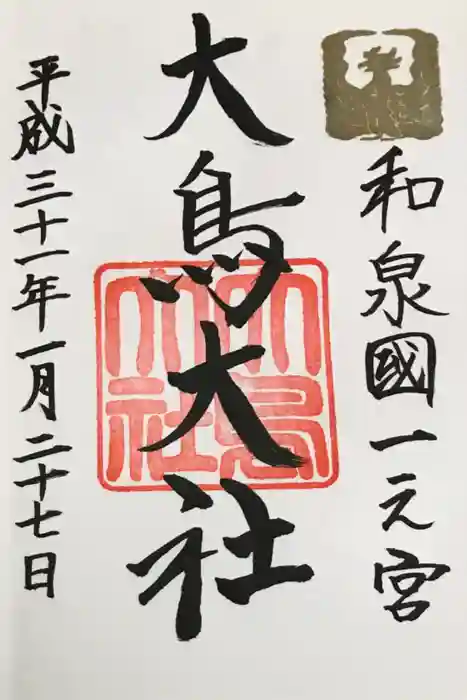 和泉國一之宮
大鳥大社
大鳥大社
平成三十一年一月二十七日